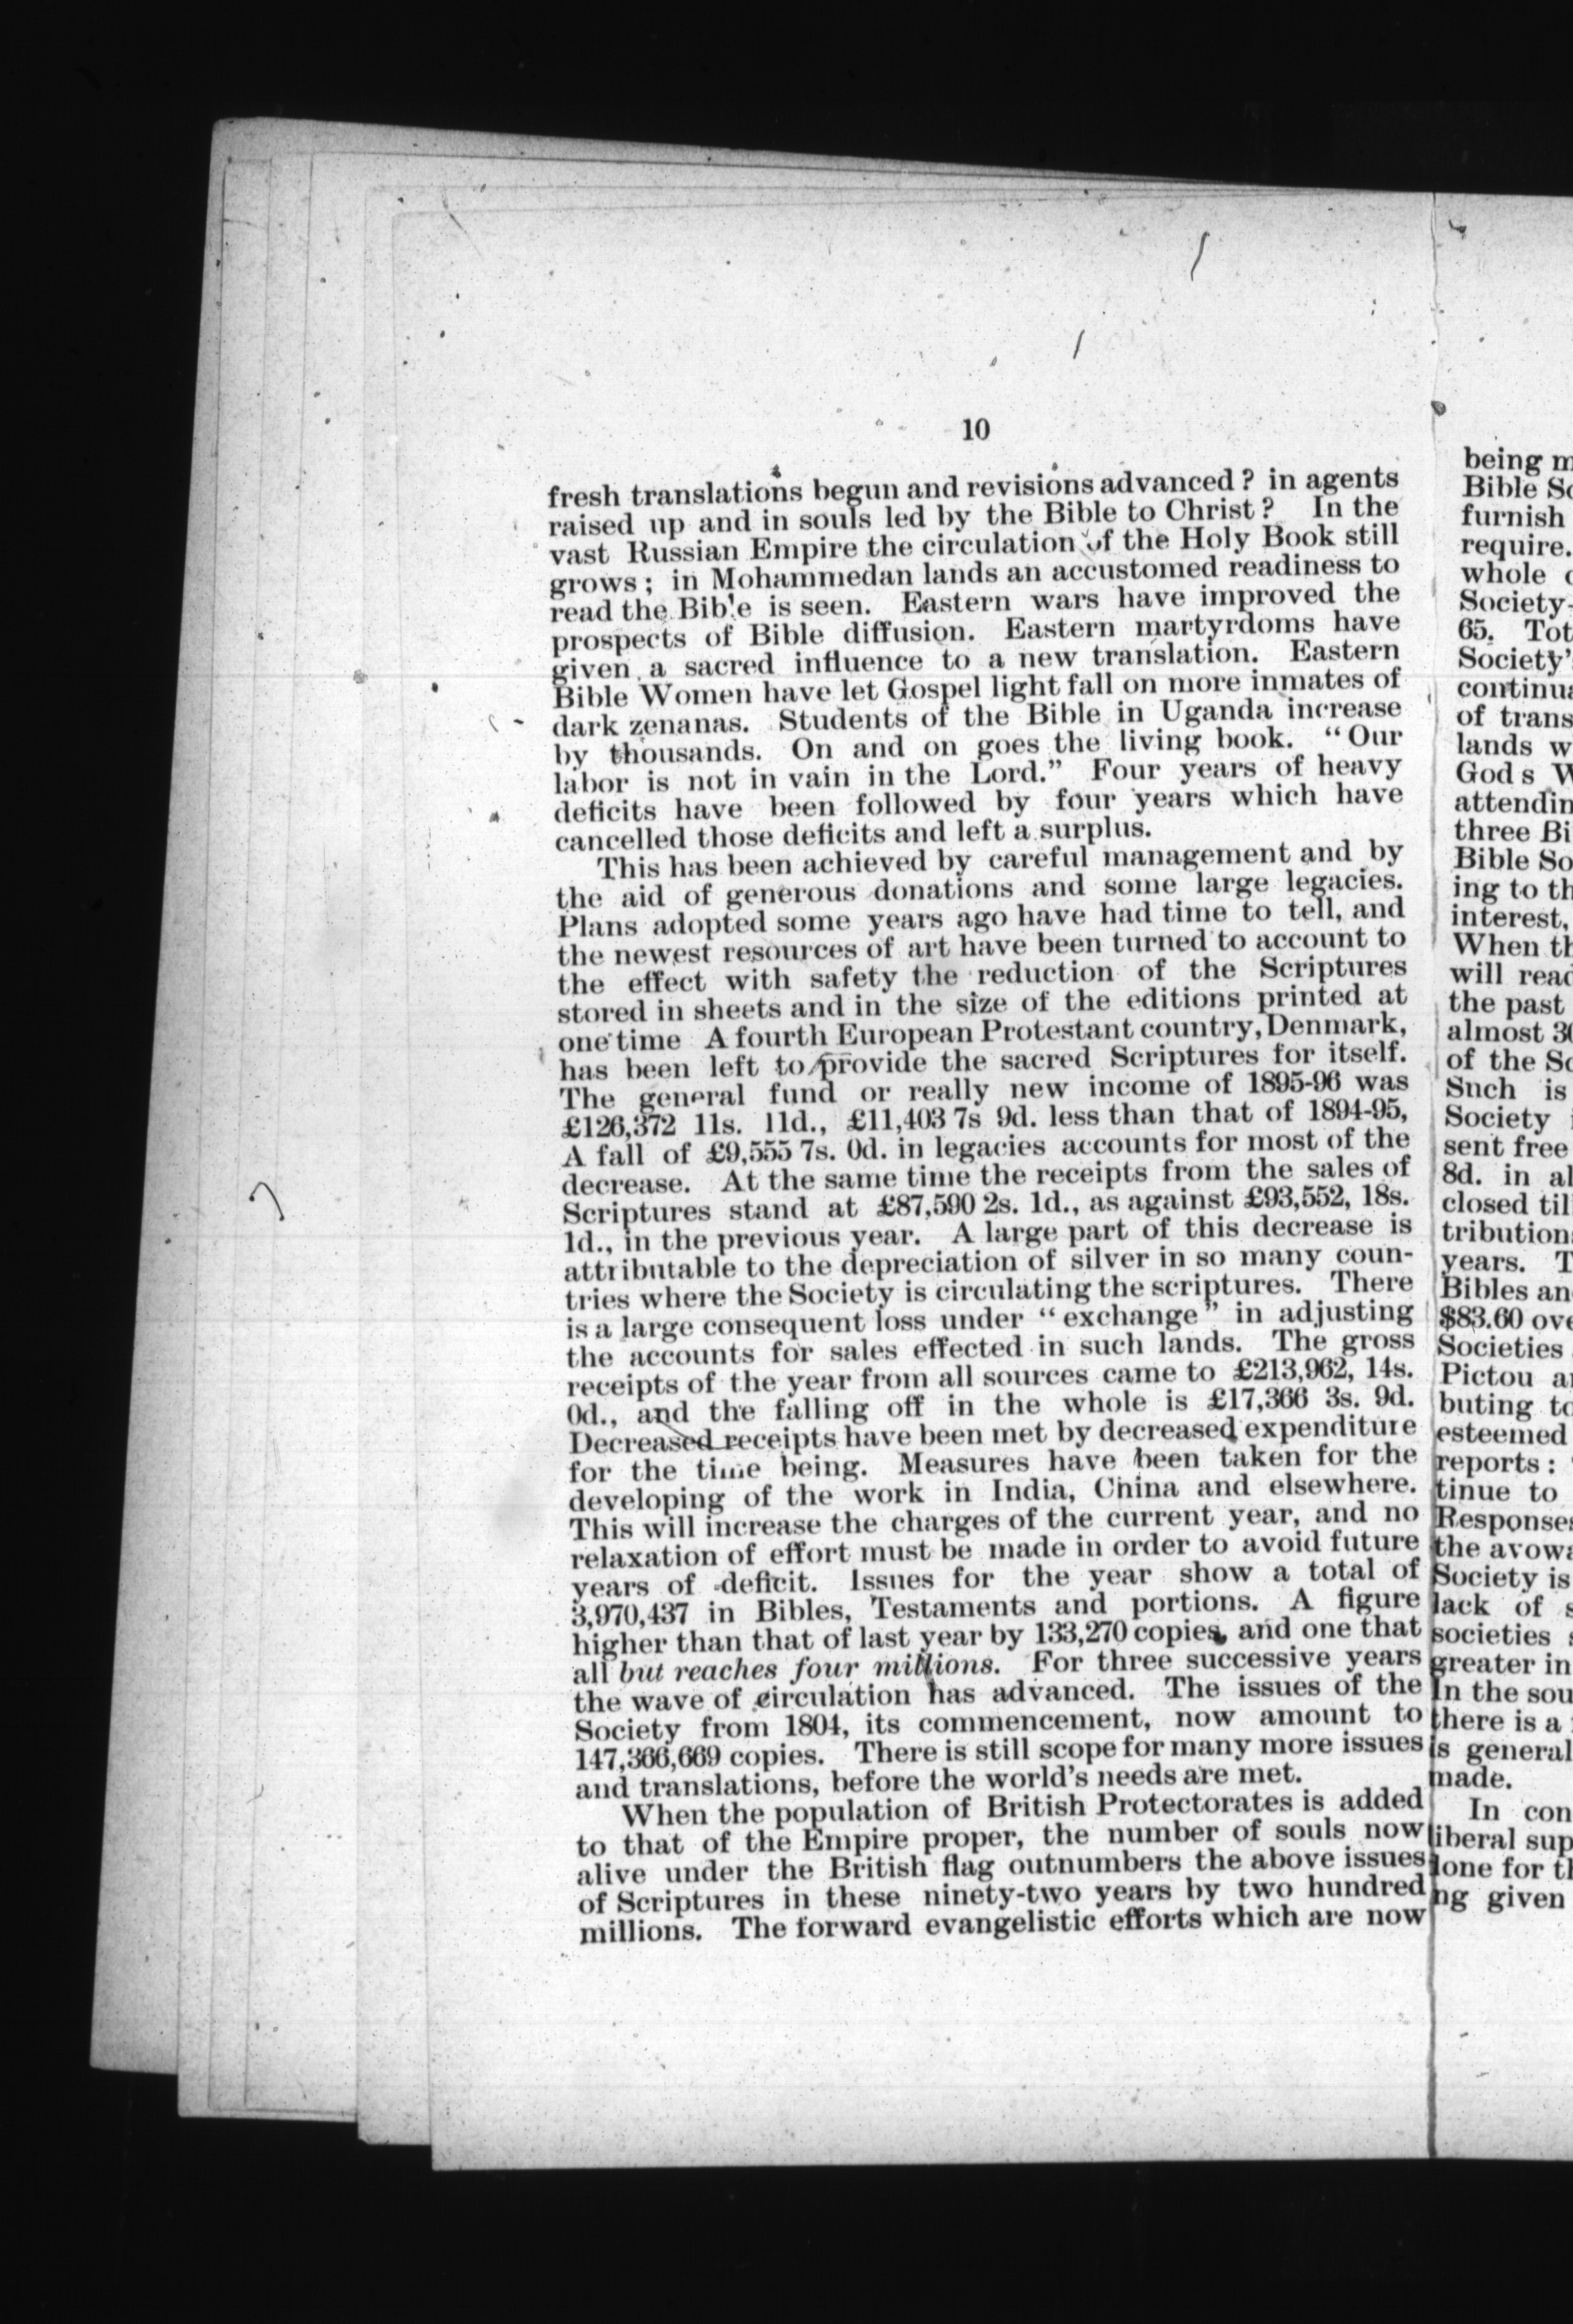 10
fresh translations begun and revisions advanced ? in agents
raised up and in souls led by the Bible to Christ ? In the
vast Russian Empire the circulation of the Holy Book still
grows ; in Mohammedan lands an accustomed readiness to
read the Bible is seen. Eastern wars have improved the
prospects of Bible diffusion. Eastern martyrdoms have
given a sacred influence to a new translation. Eastern
Bible Women have let Gospel light fall on more inmates of
dark zenanas. Students of the Bible in Uganda increase
by thousands. On and on goes the living book. “Our
labor is not in vain in the Lord.” Four years of heavy
deficits have been followed by four years which have
cancelled those deficits and left a surplus.
This has been achieved by careful management and by
the aid of generous donations and some large legacies.
Plans adopted some years ago have had time to tell, and
the newest resources of art have been turned to account to
the effect with safety the reduction of the Scriptures
stored in sheets and in the size of the editions printed at
one time A fourth European Protestant country, Denmark,
has been left to provide the sacred Scriptures for itself.
The general fund or really new income of 1895-96 was
£126,372 11s. 11d., £11,403 7s 9d. less than that of 1894-95,
A fall of £9,555 7s. 0d. in legacies accounts for most of the
decrease. At the same time the receipts from the sales of
Scriptures stand at £87,590 2s. 1d., as against £93,552, 18s.
1d., in the previous year. A large part of this decrease is
attributable to the depreciation of silver in so many coun-
tries where the Society is circulating the scriptures. There
is a large consequent loss under “exchange” in adjusting
the accounts for sales effected in such lands. The gross
receipts of the year from all sources came to £213,962, 14s.
0d., and the falling off in the whole is £17,366 3s. 9d.
Decreased receipts have been met by decreased expenditure
for the time being. Measures have been taken for the
developing of the work in India, China and elsewhere.
This will increase the charges of the current year, and no
relaxation of effort must be made in order to avoid future
years of deficit. Issues for the year show a total of
3,970,437 in Bibles, Testaments and portions. A figure
higher than that of last year by 133,270 copies, and one that
all but reaches four millions. For three successive years
the wave of circulation has advanced. The issues of the
Society from 1804, its commencement, now amount to
147,366,669 copies. There is still scope for many more issues
and translations, before the world's needs are met.
When the population of British Protectorates is added
to that of the Empire proper, the number of souls now
alive under the British flag outnumbers the above issues
of Scriptures in these ninety-two years by two hundred
millions. The forward evangelistic efforts which are now
being
Bible
furnish
require.
whole
Society-
65. Tot
Society'
continua
of trans
lands w
God s W
attendin
three Bi
Bible So
ing to th
interest,
When th
will read
the past
almost 30
of the So
Such is
Society
sent free
8d. in al
closed till
tribution
years. T
Bibles an
$83.60 ove
Societies
Pictou a
buting to
esteemed
reports :
tinue to
Response
the avowa
Society is
lack of s
societies
greater in
In the sou
there is a
is general
made.
In con
liberal sup
done for th
ng given